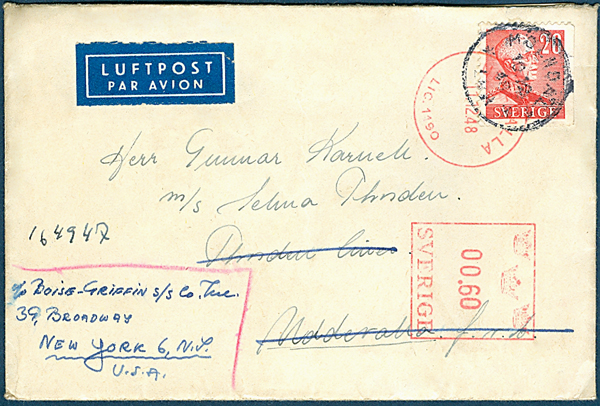 LUFTPOST
PAR AVION
20
SVERIGE
LIC. 1150
12.48
LLA
Herr Gunnar Karnell.
m/s Selma Thordén.
Thordén Lines
Uddevalla f.v.b.
164947
c/o BOISE-GRIFFIN S/S Co. Inc.
39, BROADWAY
NEW YORK 6, N.Y.
U.S.A.
SVERIGE
00.60